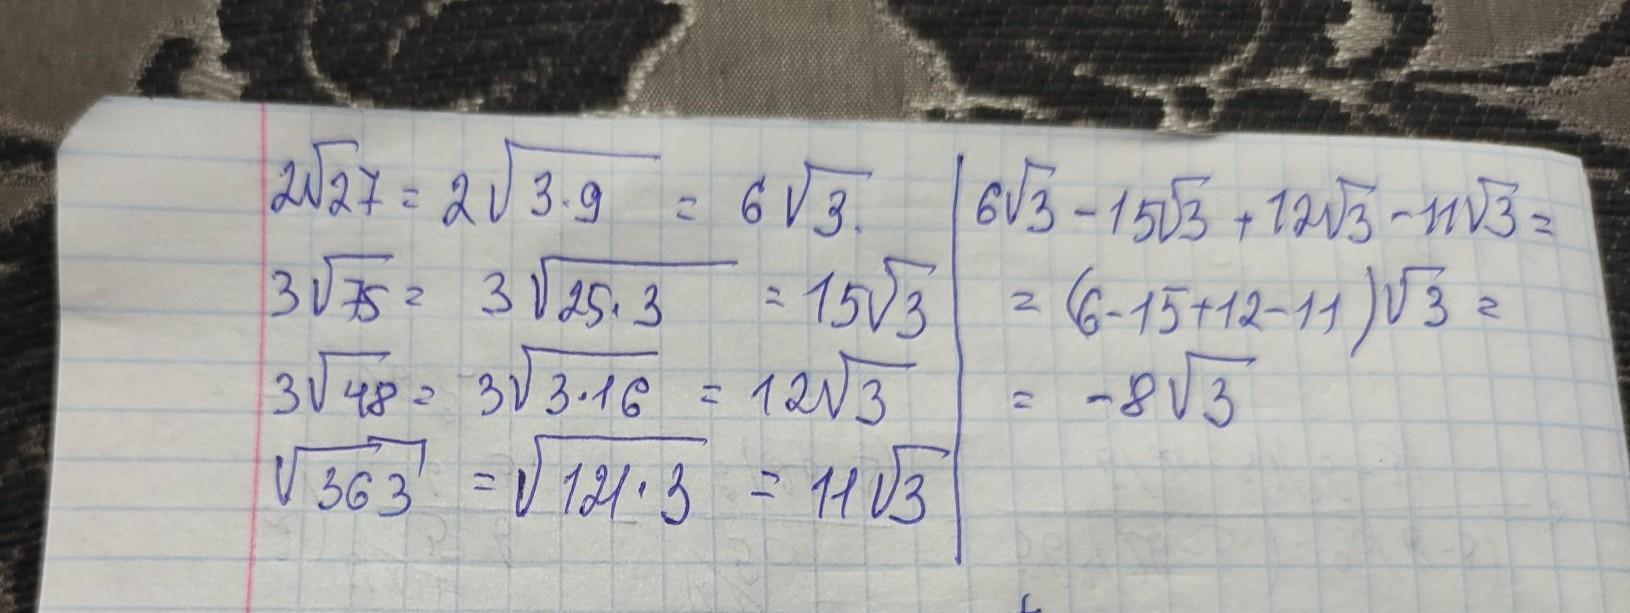 2√27 = 2√3·9 = 6√3.
3√75 = 3√25·3 = 15√3
3√48 = 3√3·16 = 12√3
√363 = √121·3 = 11√3
6√3 - 15√3 + 12√3 - 11√3 =
= (6-15+12-11)√3 =
= -8√3